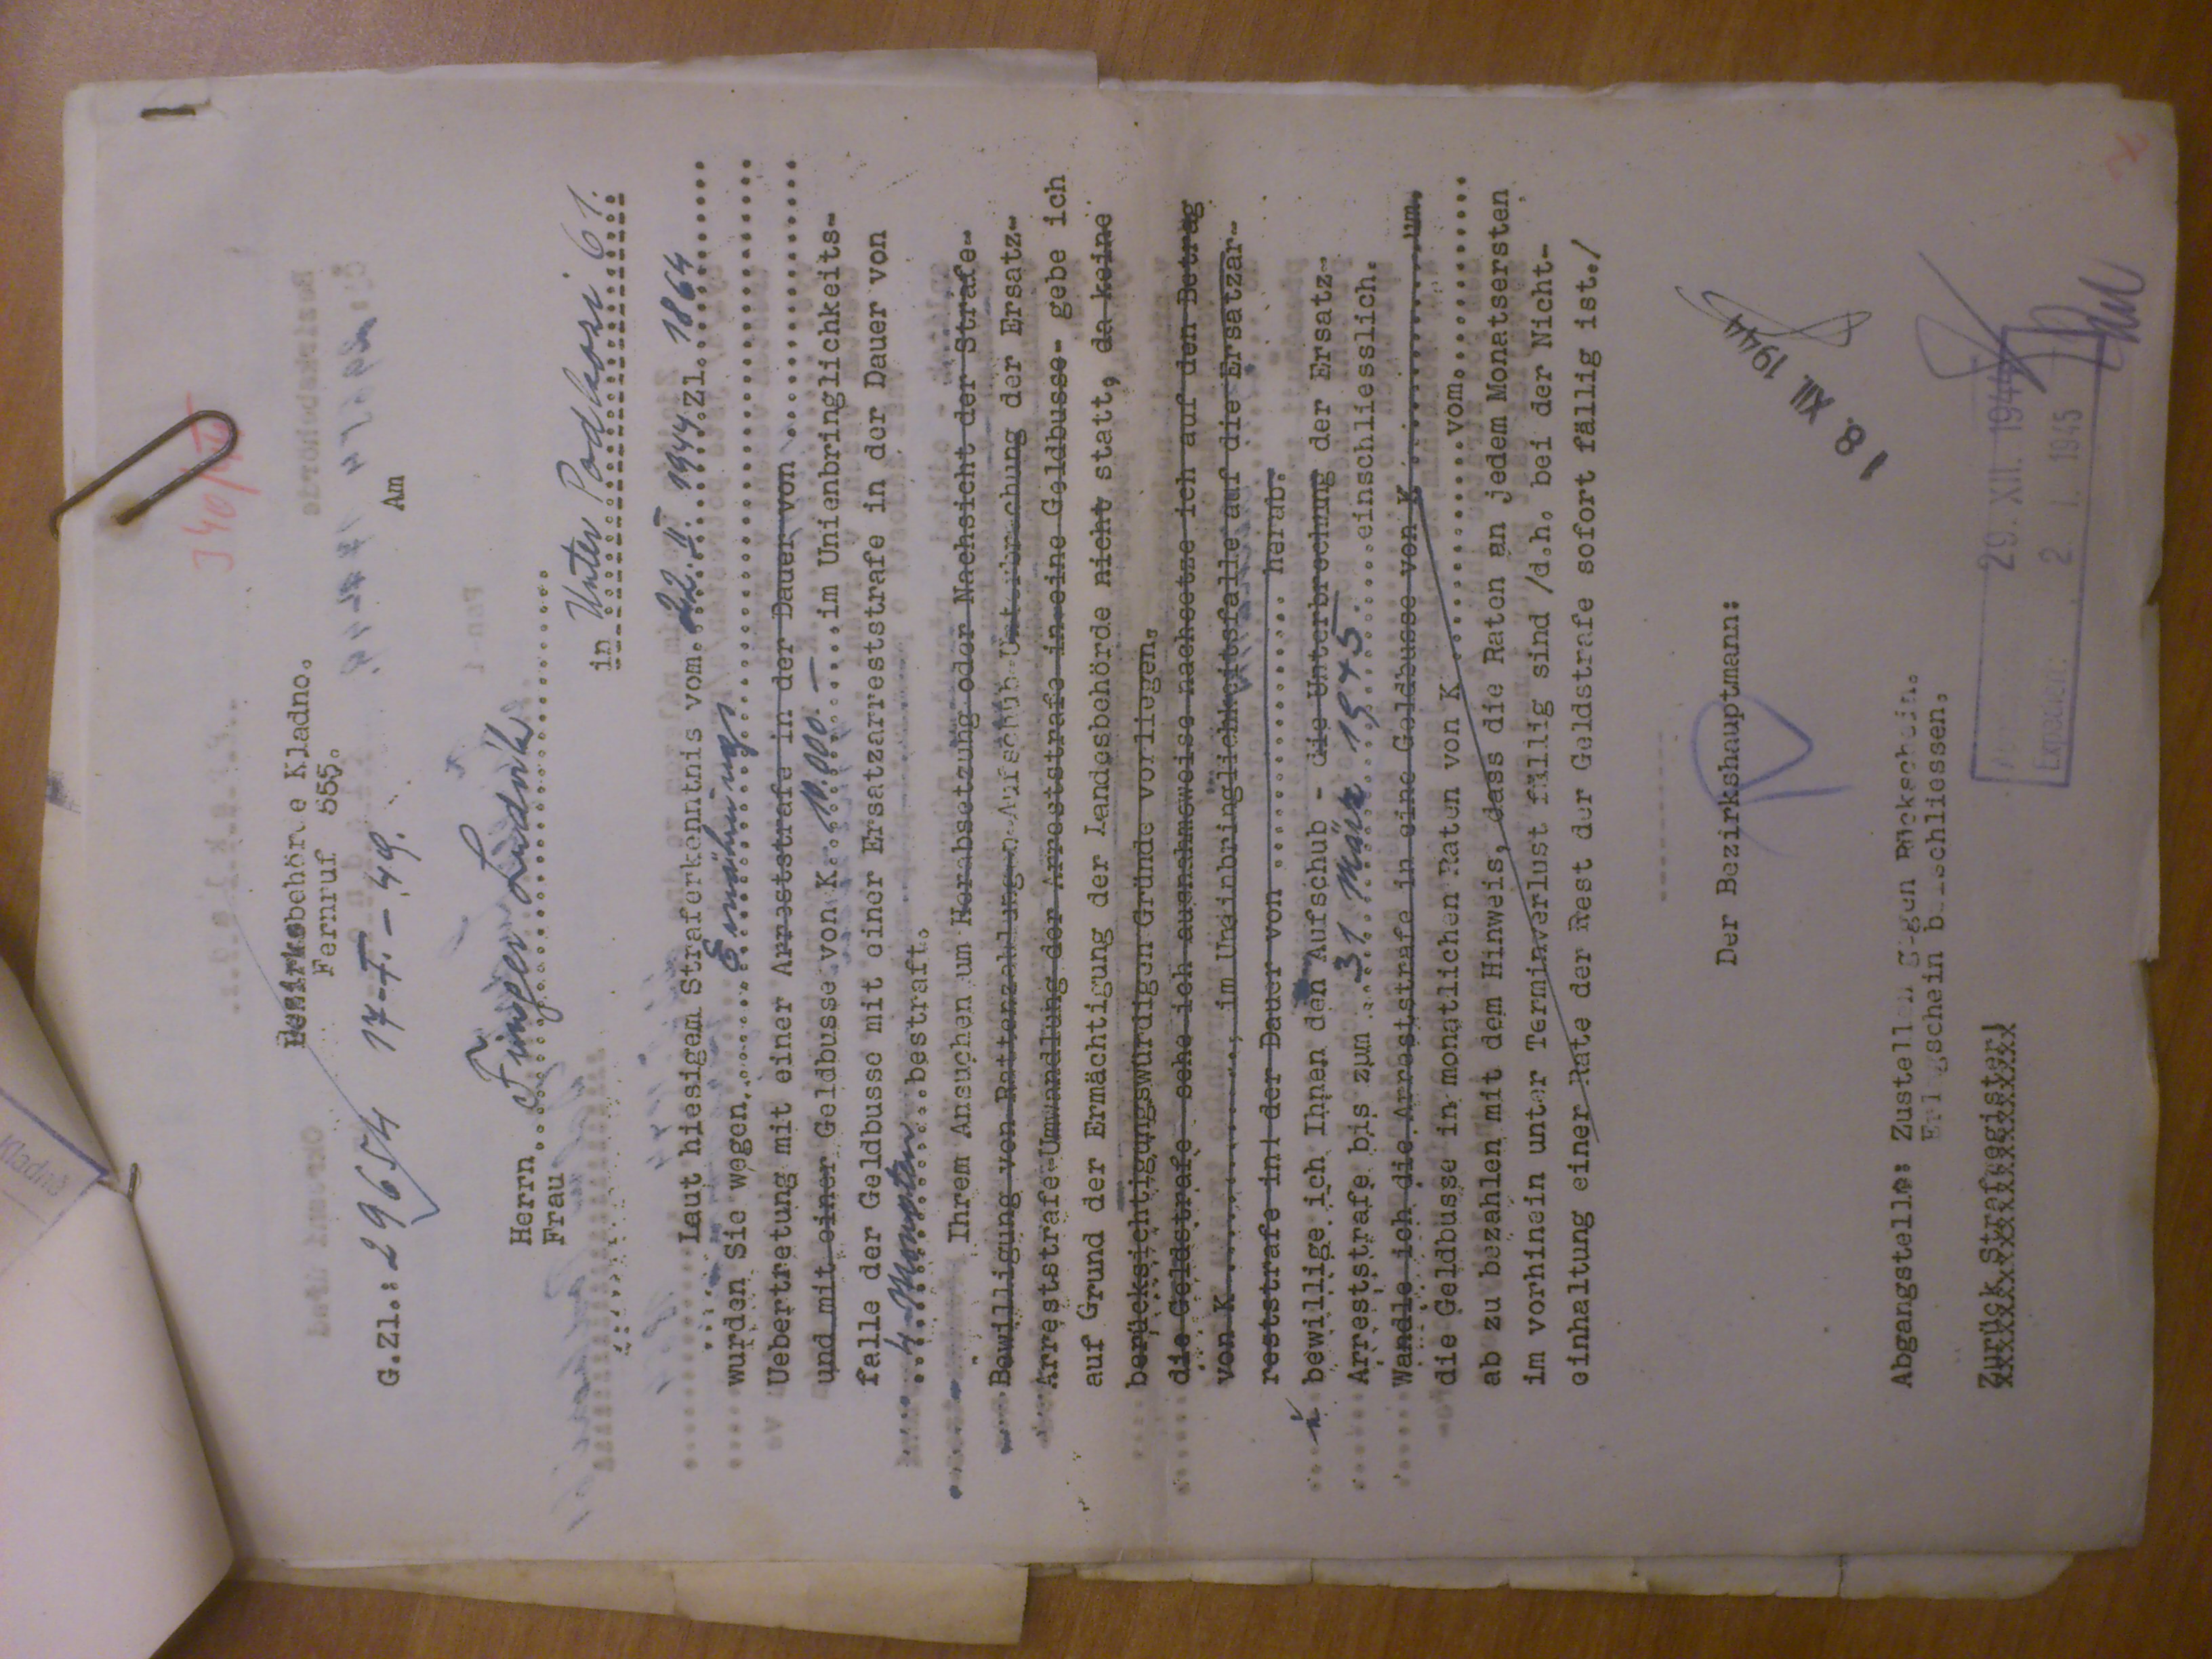 Kladno
340/
Bezirksbehörde Kladno.
Fernruf 555.
G.Zl.: 29654 17-I.-49. Am
Herrn Finger Ludvík
Frau
in Unter Podkozi 61.
Laut hiesigem Straferkenntnis vom 22. II. 1944 Zl. 1864
wurden Sie wegen Ernährungs
Uebertretung mit einer Arreststrafe in der Dauer von
und mit einer Geldbusse von K 10.000.- im Unienbringlichkeits-
falle der Geldbusse mit einer Ersatzarreststrafe in der Dauer von
4 Monaten bestraft.
Ihrem Ansuchen um Herabsetzung oder Nachsicht der Strafe-
Bewilligung von Rattenzahlungen-Aufschub-Unterbrechung der Ersatz-
Arreststrafe-Umwandlung der Arreststrafe in eine Geldbusse- gebe ich
auf Grund der Ermächtigung der Landesbehörde nicht statt, da keine
berücksichtigungswürdigen Gründe vorliegen.
die Geldstrafe sehe ich ausnahmsweise nachsetze ich auf den Betrag
von K ............., im Uneinbringlichkeitsfalle auf die Ersatzar-
reststrafe in der Dauer von ................ herab.
bewillige ich Ihnen den Aufschub - die Unterbrechung der Ersatz-
Arreststrafe bis zum 31. März 1945. einschliesslich.
Wandle ich die Arreststrafe in eine Geldbusse von K ............. um.
die Geldbusse in monatlichen Raten von K ............. vom............
ab zu bezahlen mit dem Hinweis, dass die Raten an jedem Monatsersten
im vorhinein unter Terminverlust fällig sind /d.h. bei der Nicht-
einhaltung einer Rate der Rest der Geldstrafe sofort fällig ist./
Der Bezirkshauptmann:
18. XII. 1944
Abgangstelle: Zustellen gegen Rückschein.
Erlagschein beischliessen.
Zurück Strafregister!
29. XII. 1944
Expedien: 2 I. 1945